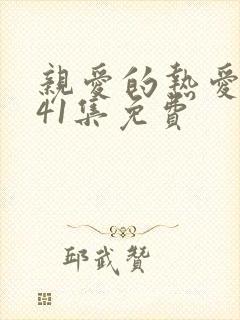 親愛的熱愛
41集免費
邱武贊